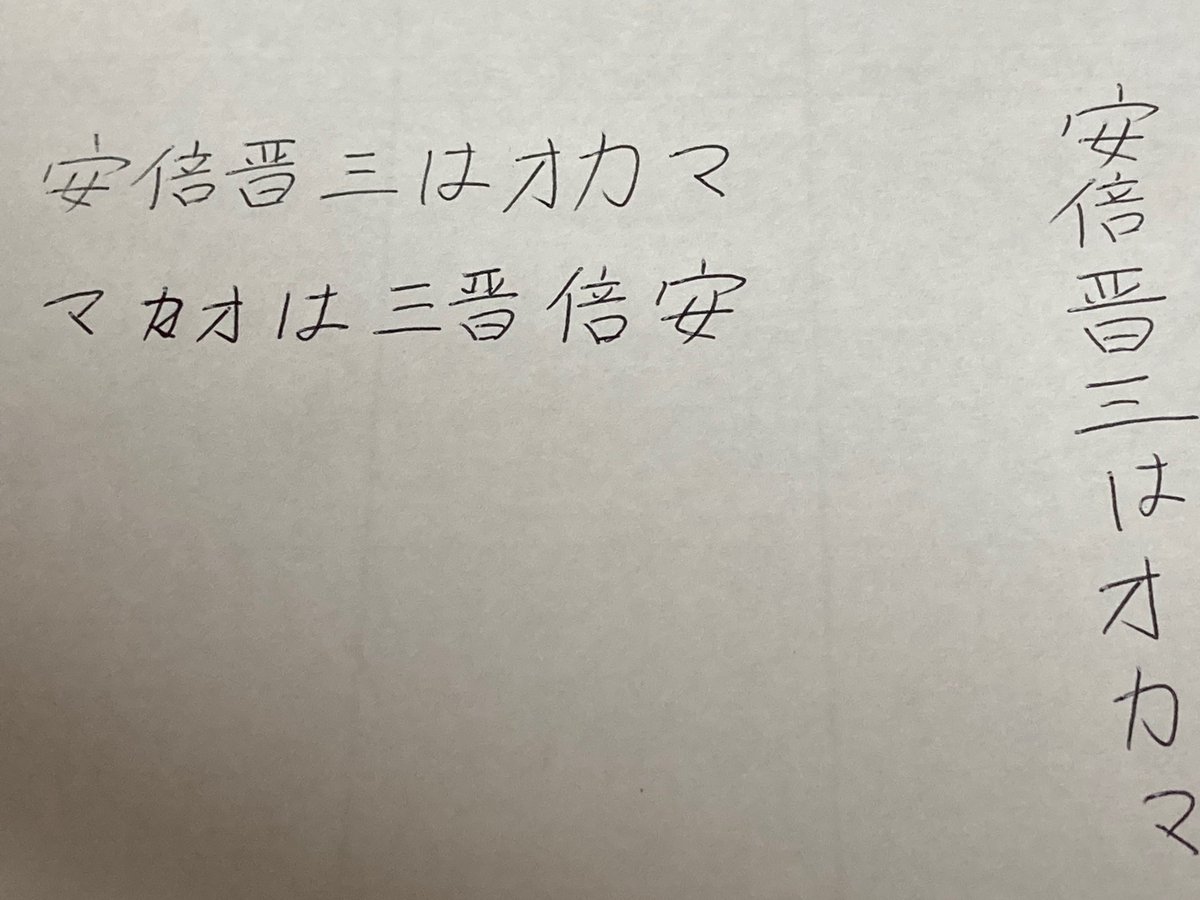 安倍晋三はオカマ
マカオは三晋倍安
安倍晋三はオカマ